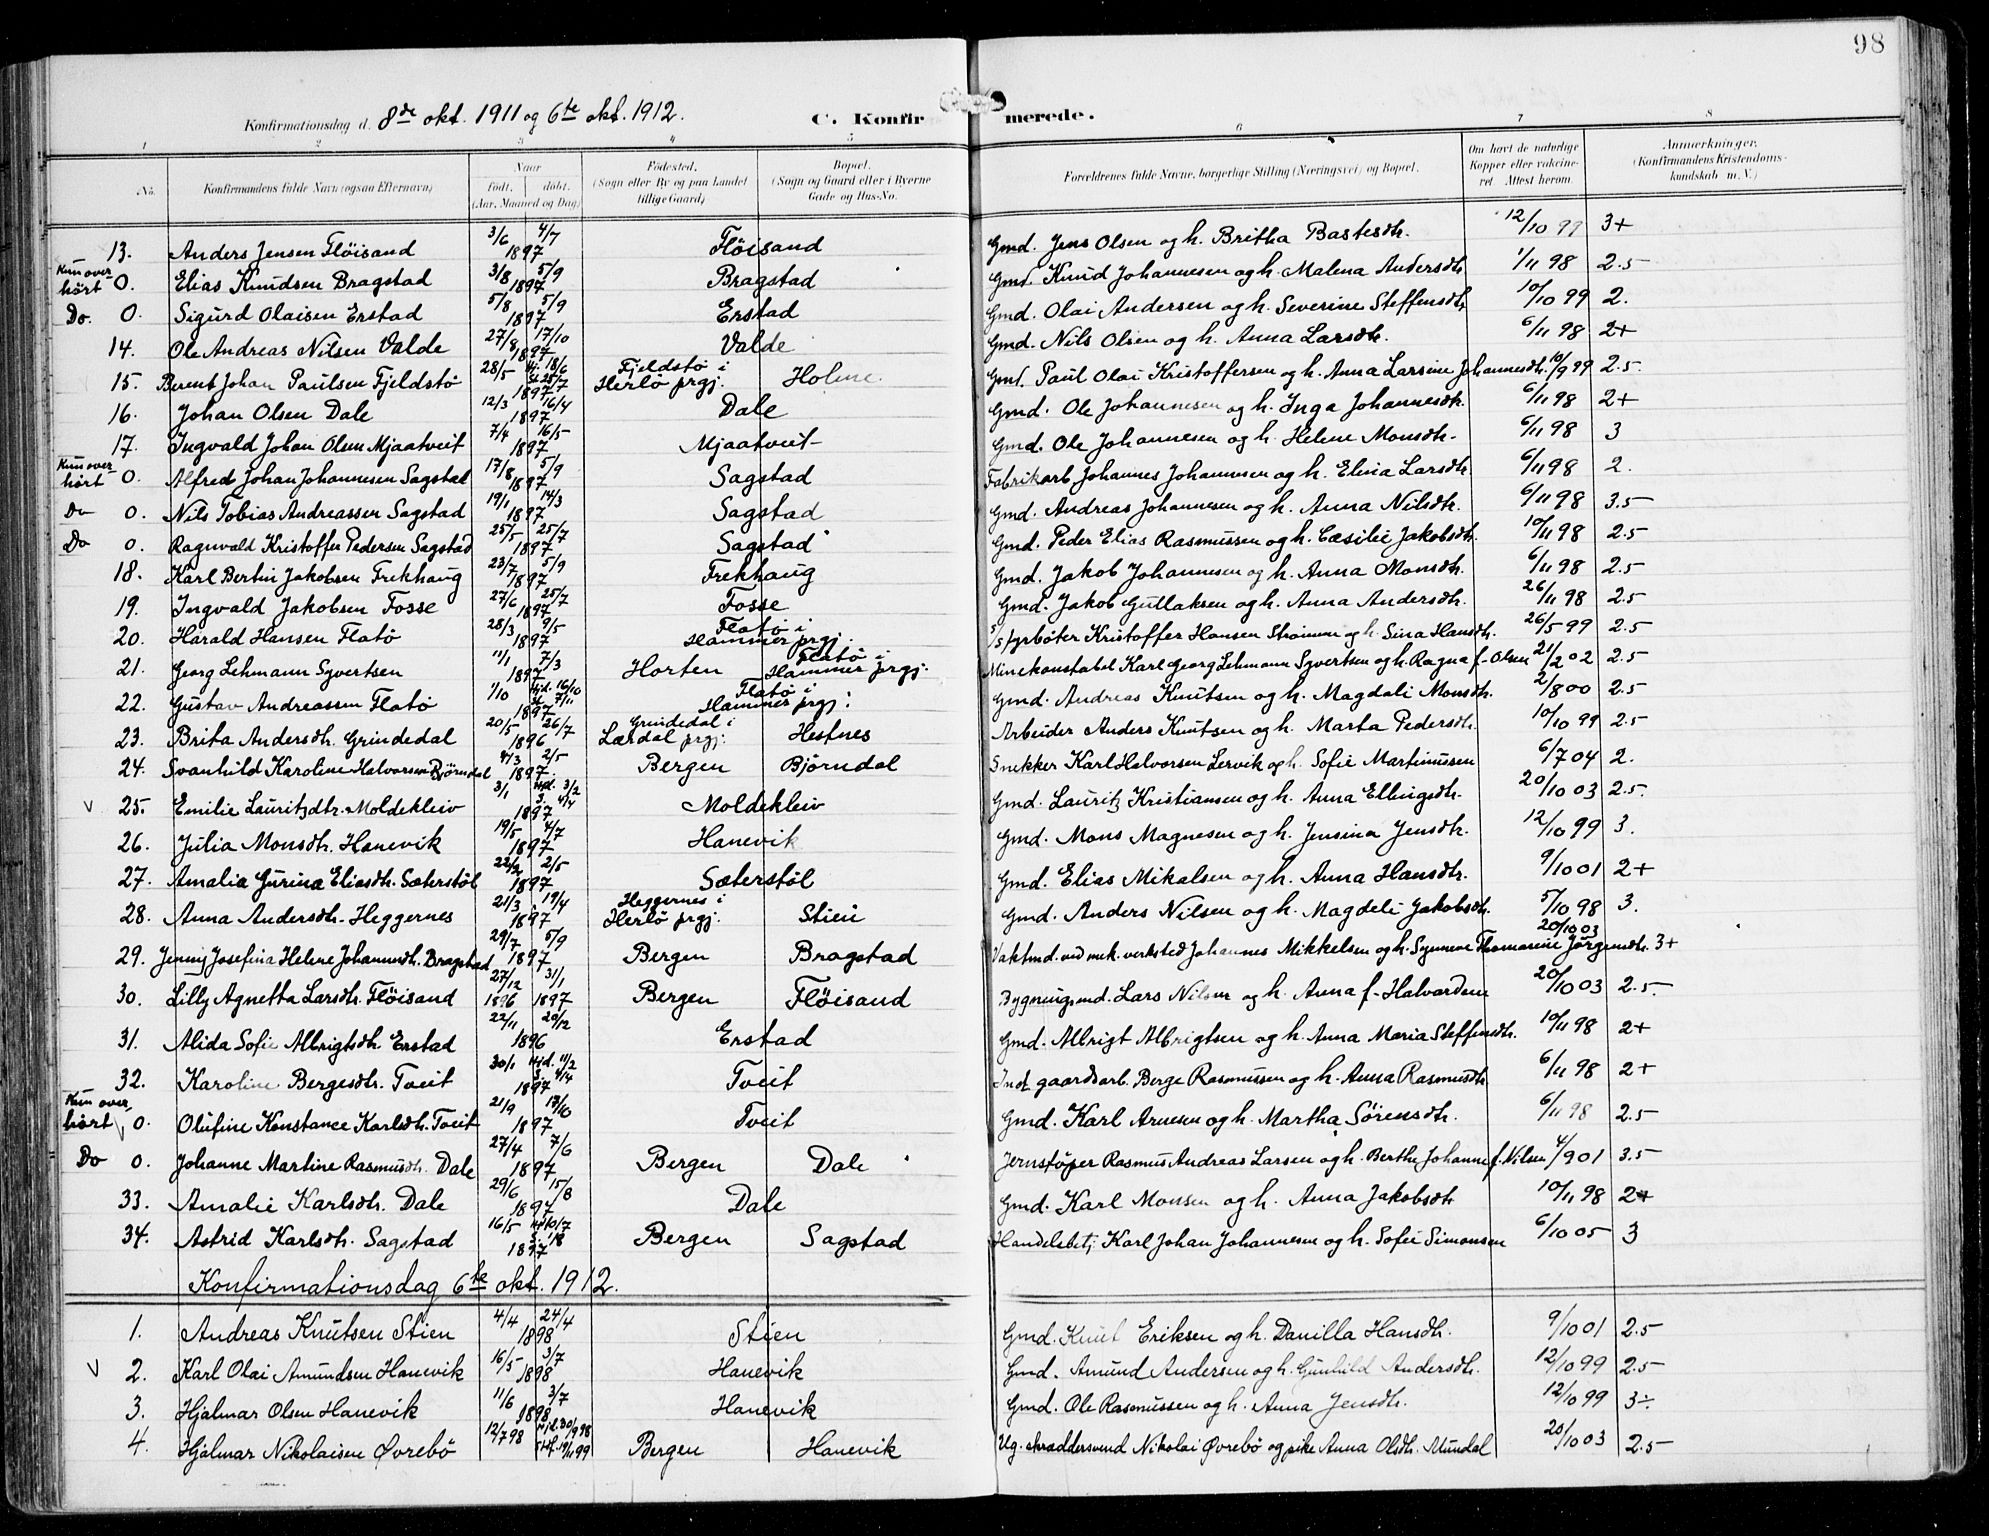 98
Konfirmationsdag d. 8de okt. 1911 og 6te okt. 1912.
C. Konfirmerede.
1 2 3 4 5 6 7 8
No. Konfirmandens fulde Navn (ogsaa Efternavn) Naar født. døbt. (Aar, Maaned og Dag) Fødested. (Sogn eller By og paa Landet tillige Gaard) Bopæl. (Sogn og Gaard eller i Byerne Gade og Hus-No. Forældrenes fulde Navne, borgerlige Stilling (Næringsvei) og Bopæl. Om havt de naturlige Kopper eller vakcineret. Attest herom. Anmærkninger. (Konfirmandens Kristendomskundskab m. V.)
13. Anders Jensen Flöisand 3/6 4/7 1897 Flöisand Gmd. Jens Olsen og h. Britha Bastesdtr. 12/10 99 3+
Kun overhört 0. Elias Knudsen Bragstad 3/8 5/9 1897 Bragstad Gmd. Knud Johannesen og h. Malena Andersdtr 1/11 98 2.5
Do. 0. Sigurd Olaisen Erstad 5/8 5/9 1897 Erstad Gmd. Olai Andersen og h. Severine Steffensdtr 10/10 99 2.
14. Ole Andreas Nilsen Valde 27/8 17/10 1897 Valde Gmd. Nils Olsen og h. Anna Larsdtr. 6/11 98 2+
15. Berent Johan Paulsen Fjeldstö 28/5 Hj. 18/6 St. 25/7 1897 Fjeldstö i Herlö prgj. Holme Gmd. Paul Olai Kristoffersen og h. Anna Larsine Johannesdtr. 10/9 99 2.5
16. Johan Olsen Dale 12/3 16/4 1897 Dale Gmd. Ole Johannesen og h. Inga Johannesdtr. 6/11 98 2+
17. Ingvald Johan Olsen Mjaatveit 7/4 16/5 1897 Mjaatveit Gmd. Ole Johannesen og h. Helene Monsdtr. 6/11 98 3
Kun overhört 0. Alfred Johan Johannesen Sagstad 17/8 5/9 1897 Sagstad Fabrikarb. Johannes Johannesen og h. Elina Larsdtr. 6/11 98 2.
Do 0. Nils Tobias Andreassen Sagstad 19/1 14/3 1897 Sagstad Gmd. Andreas Johannesen og h. Anna Nilsdtr. 6/11 98 3.5
Do 0. Ragnvald Kristoffer Pedersen Sagstad 25/5 25/7 1897 Sagstad Gmd. Peder Elias Rasmussen og h. Cæsilie Jakobsdtr. 10/11 98 2.5
18. Karl Bertin Jakobsen Frekhaug 23/7 5/9 1897 Frekhaug Gmd. Jakob Johannesen og h. Anna Monsdtr. 6/11 98 2.5
19. Ingvald Jakobsen Fosse 27/6 25/7 1897 Fosse Gmd. Jakob Gullaksen og h. Anna Andersdtr. 26/11 98 2.5
20. Harald Hansen Flatö 28/3 9/5 1897 Flatö i Hammer prgj. S/S fyrböter Kristoffer Hansen Strömme og h. Sina Hansdtr. 26/5 99 2.5
21. Georg Lehmann Syvertsen 11/1 7/3 1897 Horten Flatö i Hammer prgj. Minekonstabel Karl Georg Lehmann Syvertsen og h. Ragna f. Olsen 21/2 02 2.5
22. Gustav Andreassen Flatö 1/10 Hjd. 16/10 7/11 1897 Flatö i Hammer prgj. Gmd. Andreas Knutsen og h. Magdali Monsdtr. 2/8 00 2.5
23. Brita Andersdtr. Grindedal 20/5 26/7 1896 Grindedal i Lærdal prgj. Hestnes Arbeider Anders Knutsen og h. Marta Pedersdtr. 10/10 99 2.5
24. Svanhild Karoline Halvorsen Björndal 4/3 2/5 1897 Bergen Björndal Snekker Karl Halvorsen Lervik og h. Sofie Martinussen 6/7 04 2.
V 25. Emilie Lauritzdtr. Moldekleiv 3/1 Hjd. 3/2 S. 4/4 1897 Moldekleiv Gmd. Lauritz Kristiansen og h. Anna Ellingsdtr. 20/10 03 2.5.
26. Julia Monsdtr. Hanevik 19/5 4/7 1897 Hanevik Gmd. Mons Magnesen og h. Jensina Jensdtr. 12/10 99 3.
27. Amalia Gurina Eliasdtr. Sæterstöl 22/2 2/5 1897 Sæterstöl Gmd. Elias Mikalsen og h. Anna Hansdtr. 9/10 01 2+
28. Anna Andersdtr. Heggernes 21/3 19/4 1897 Heggernes i Herlö prgj. Stien Gmd. Anders Nilsen og h. Magdeli Jakobsdtr. 5/10 98 3.
29. Jenny Josefina Helene Johannsdtr. Bragstad 29/7 5/9 1897 Bergen Bragstad Vaktmd. ved mek. verksted Johannes Mikkelsen og h. Synneve Thomasine Jörgensdtr. 20/10 03 3+
30. Lilly Agnetta Larsdtr. Flöisand 27/12 1896 31/1 1897 Bergen Flöisand Bygningsmd. Lars Nilsen og h. Anna f. Halvardsen 20/10 03 2.5.
31. Alida Sofie Albrigtsdtr. Erstad 22/11 20/12 1896 Erstad Gmd. Albrigt Albrigtsen og h. Anna Maria Steffensdtr. 10/11 98 2+
32. Karoline Bergesdtr. Tveit 30/1 Hjd. 11/2 S. 4/4 1897 Tveit Indt. gaardsarb. Berge Rasmussen og h. Anna Rasmusdtr 6/11 98 2+
Kun overhört V 0. Olufine Konstance Karlsdtr. Tveit 21/9 17/10 1897 Tveit Gmd. Karl Arnesen og h. Martha Sörensdtr. 6/11 98 2.5
Do 0. Johanne Martine Rasmusdtr. Dale 27/4 7/6 1897 Bergen Dale Jernstöper Rasmus Andreas Larsen og h. Berthe Johanne f. Nilsen 4/9 01 3.5
33. Amalie Karlsdtr. Dale 29/6 15/8 1897 Dale Gmd. Karl Monsen og h. Anna Jakobsdtr 10/11 98 2+
34. Astrid Karlsdtr. Sagstad 16/5 Hj 10/7 S. 1/8 1897 Bergen Sagstad Handelsbetj. Karl Johan Johannesen og h. Sofie Simonsen 6/10 05 3
Konfirmationsdag 6te okt. 1912.
1. Andreas Knutsen Stien 4/4 24/4 1898 Stien Gmd. Knut Eriksen og h. Danilla Hansdtr. 9/10 01 2.5
V 2. Karl Olai Amundsen Hanevik 16/5 3/7 1898 Hanevik Gmd. Amund Andersen og h. Gunhild Andersdtr. 12/10 99 2.5
3. Hjalmar Olsen Hanevik 11/6 3/7 1898 Hanevik Gmd. Ole Rasmussen og h. Anna Jensdtr. 12/10 99 3÷
4. Hjalmar Nikolaisen Øvrebö 12/7 98 Hjd. 30/9 98 19/11 99 Bergen Hanevik Ug. skræddersvend Nikolai Øvrebö og pike Anna Olsdtr. Mundal 20/10 03 2.5